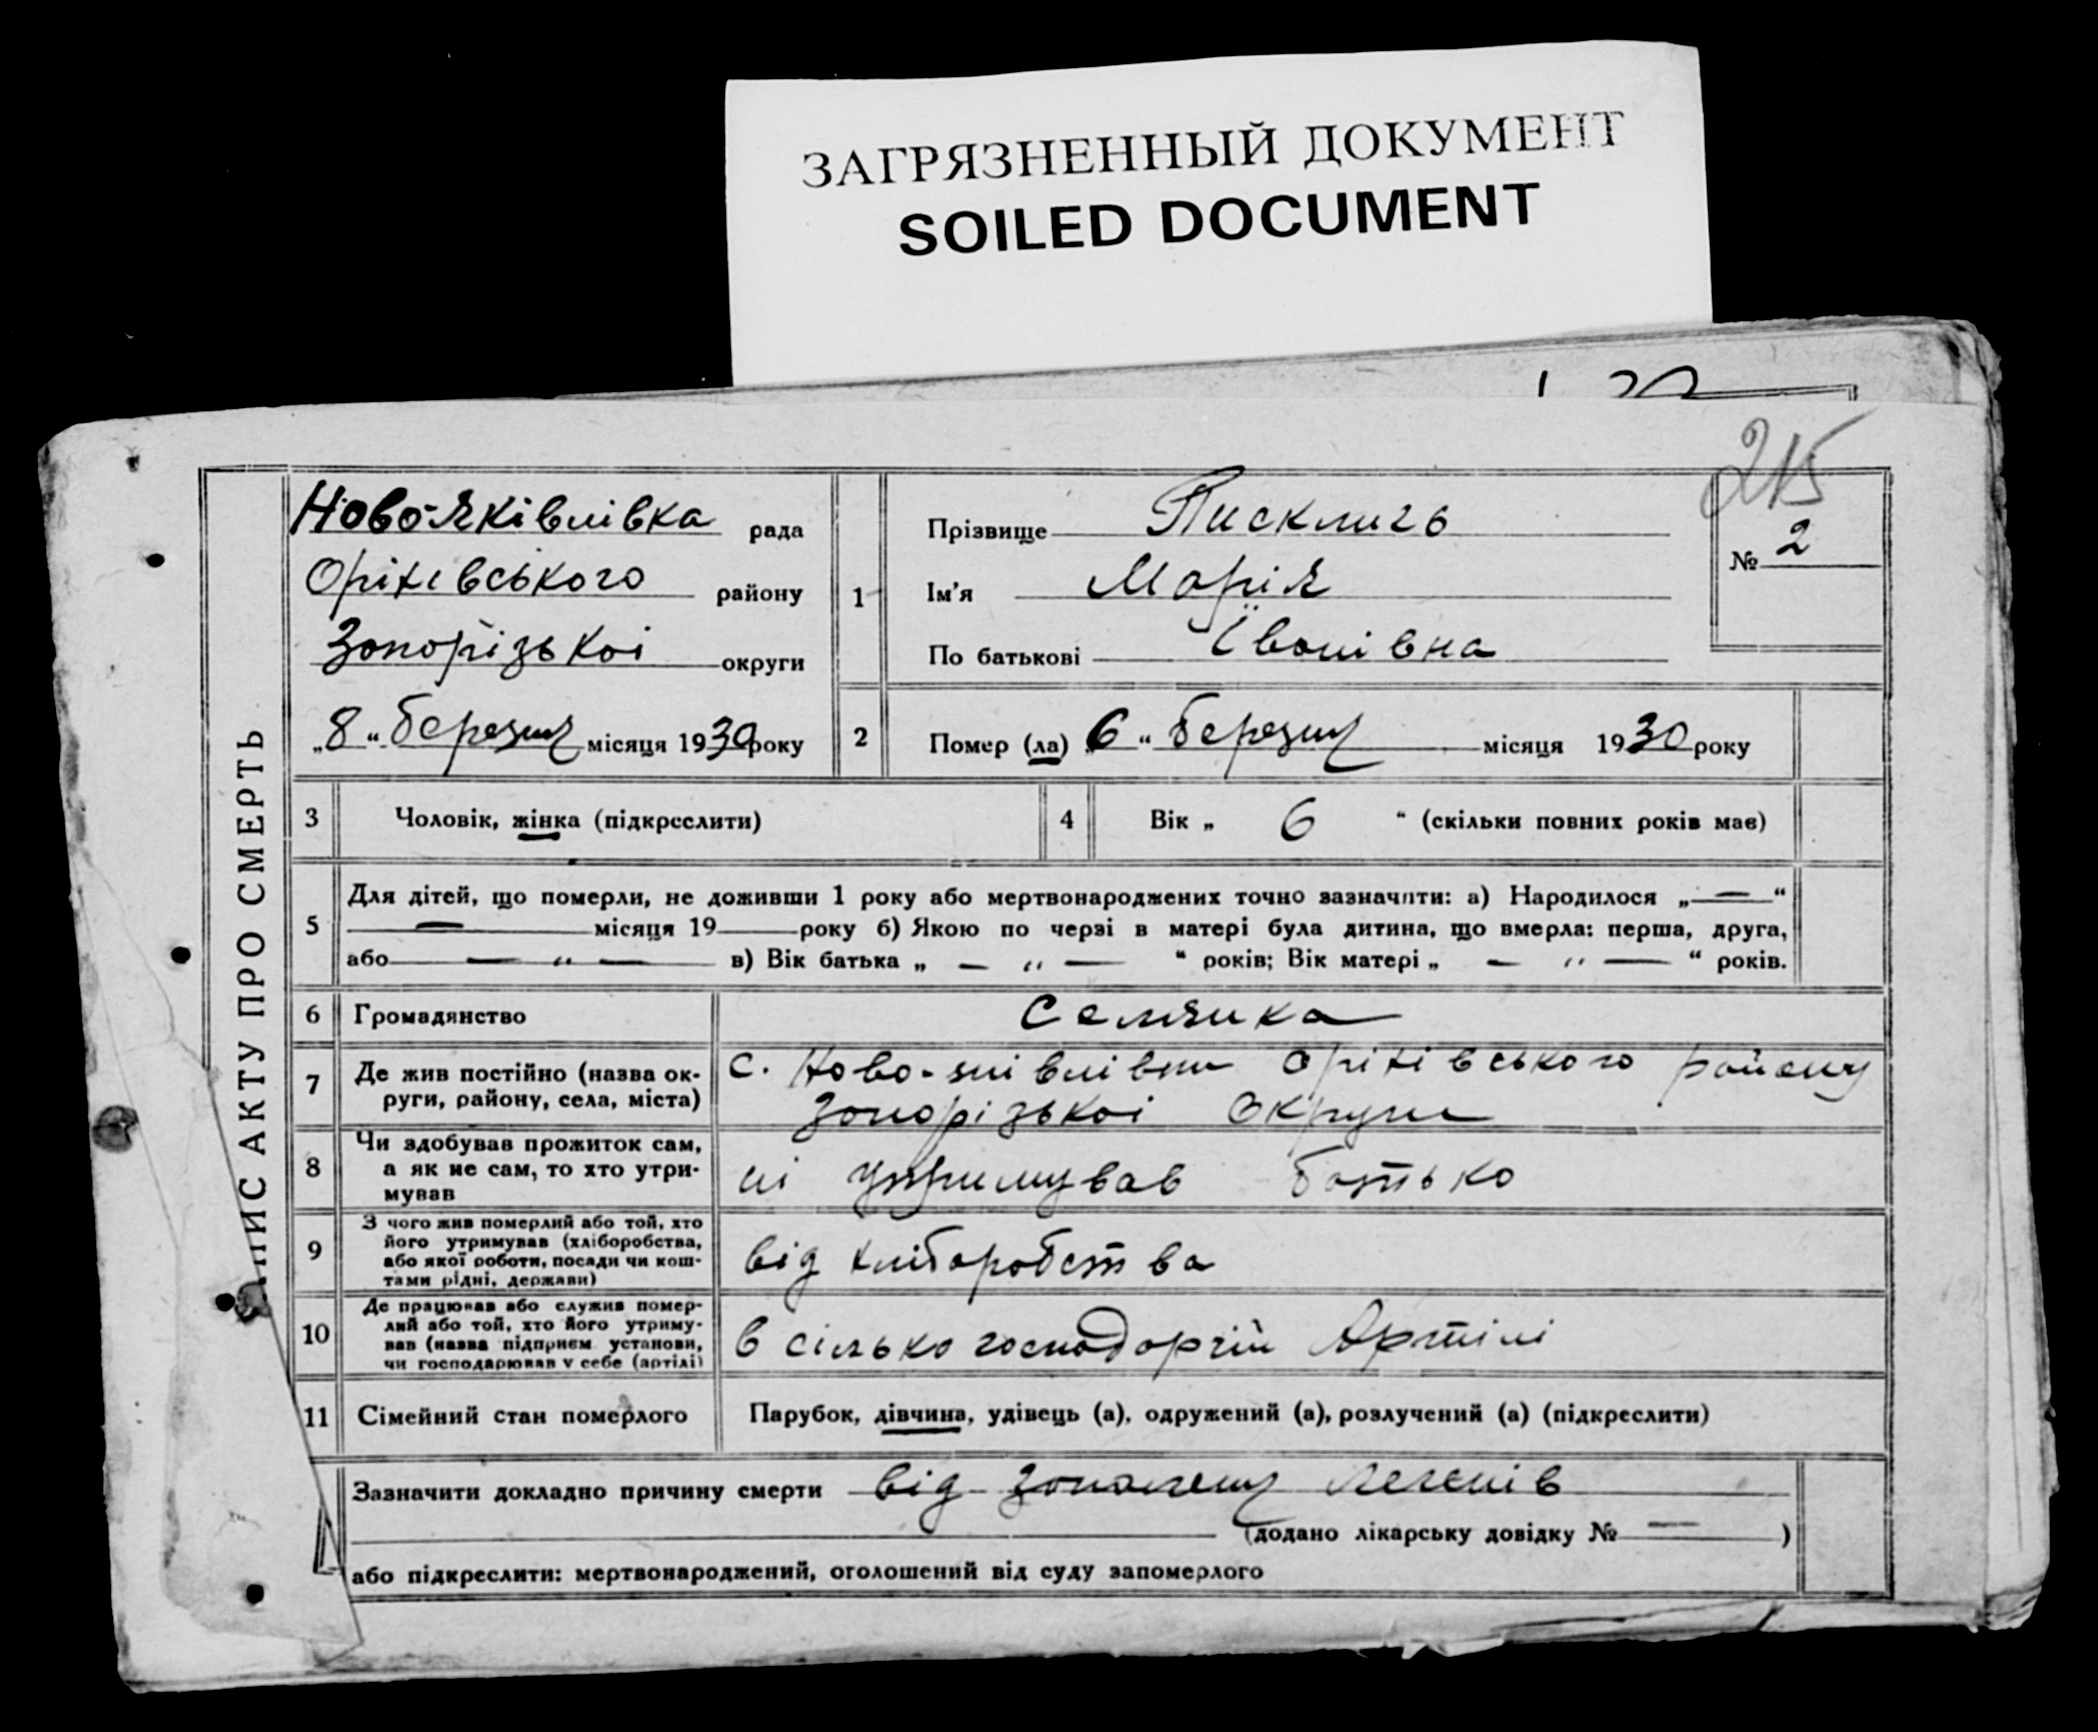 ЗАГРЯЗНЕННЫЙ ДОКУМЕНТ
SOILED DOCUMENT
215
ПИС АКТУ ПРО СМЕРТЬ
Ново-Яківлівка рада
Оріхівського району
Запорізької округи
„8“ березня місяця 1930 року
1
Прізвище
Ім'я Марія
По батькові Іванівна
№ 2
2
Помер (ла) „6“ березня місяця 1930 року
3 Чоловік, жінка (підкреслити)
4 Вік „ 6 “ (скільки повних років має)
5 Для дітей, що померли, не доживши 1 року або мертвонароджених точно зазначити: а) Народилося „—“
— місяця 19 року б) Якою по черзі в матері була дитина, що вмерла: перша, друга,
або — „ — в) Вік батька „ — „ — “ років; Вік матері „ — „ — “ років.
6 Громадянство Селянка
7 Де жив постійно (назва ок-
руги, району, села, міста)
с. Ново- Оріхівського району
Запорізькоі Округи
8 Чи здобував прожиток сам,
а як не сам, то хто утри-
мував
ні утримував батько
9 З чого жив померлий або той, хто
його утримував (хліборобства,
або якої роботи, посади чи кош-
тами рідні, держави)
від хліборобства
10 Де працював або служив помер-
лий або той, хто його утриму-
вав (назва підприєм. установи,
чи господарював у себе (артілі)
в сільсько господарчій Артілі
11 Сімейний стан померлого Парубок, дівчина, удівець (а), одружений (а), розлучений (а) (підкреслити)
Зазначити докладно причину смерти від запаленя легенів
(додано лікарську довідку № — )
або підкреслити: мертвонароджений, оголошений від суду запомерлого